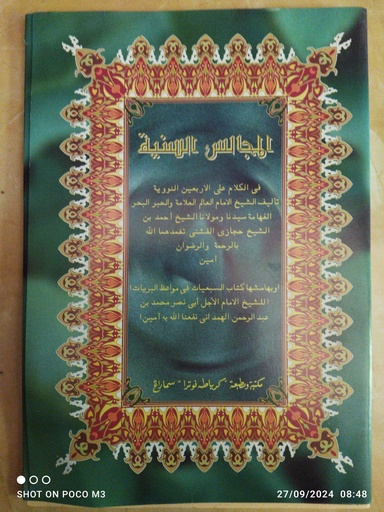 المجالس السنية
فى الكلام على الاربعين النووية
تأليف الشيخ الامام العالم العلامة والحبر البحر
الفهامة سيدنا ومولانا الشيخ أحمد بن
الشيخ حجازى الفشنى تغمدهما الله
بالرحمة والرضوان
آمين
(وبهامشها كتاب السبعيات فى مواعظ البريات)
(للشيخ الامام الاجل أبى نصر محمد بن
عبد الرحمن الهمدانى نفعنا الله به آمين)
مكتبة ومطبعة "كرياطه فوترا" سمارانغ
SHOT ON POCO M3
27/09/2024 08:48